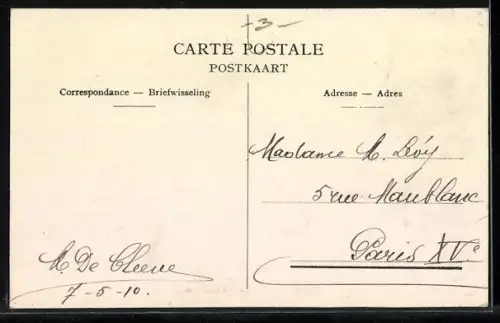 -3-
CARTE POSTALE
POSTKAART
Correspondance — Briefwisseling
Adresse — Adres
Madame M. Lévy
5 rue Maublanc
Paris XVe
M. De Cleene
7-5-10.